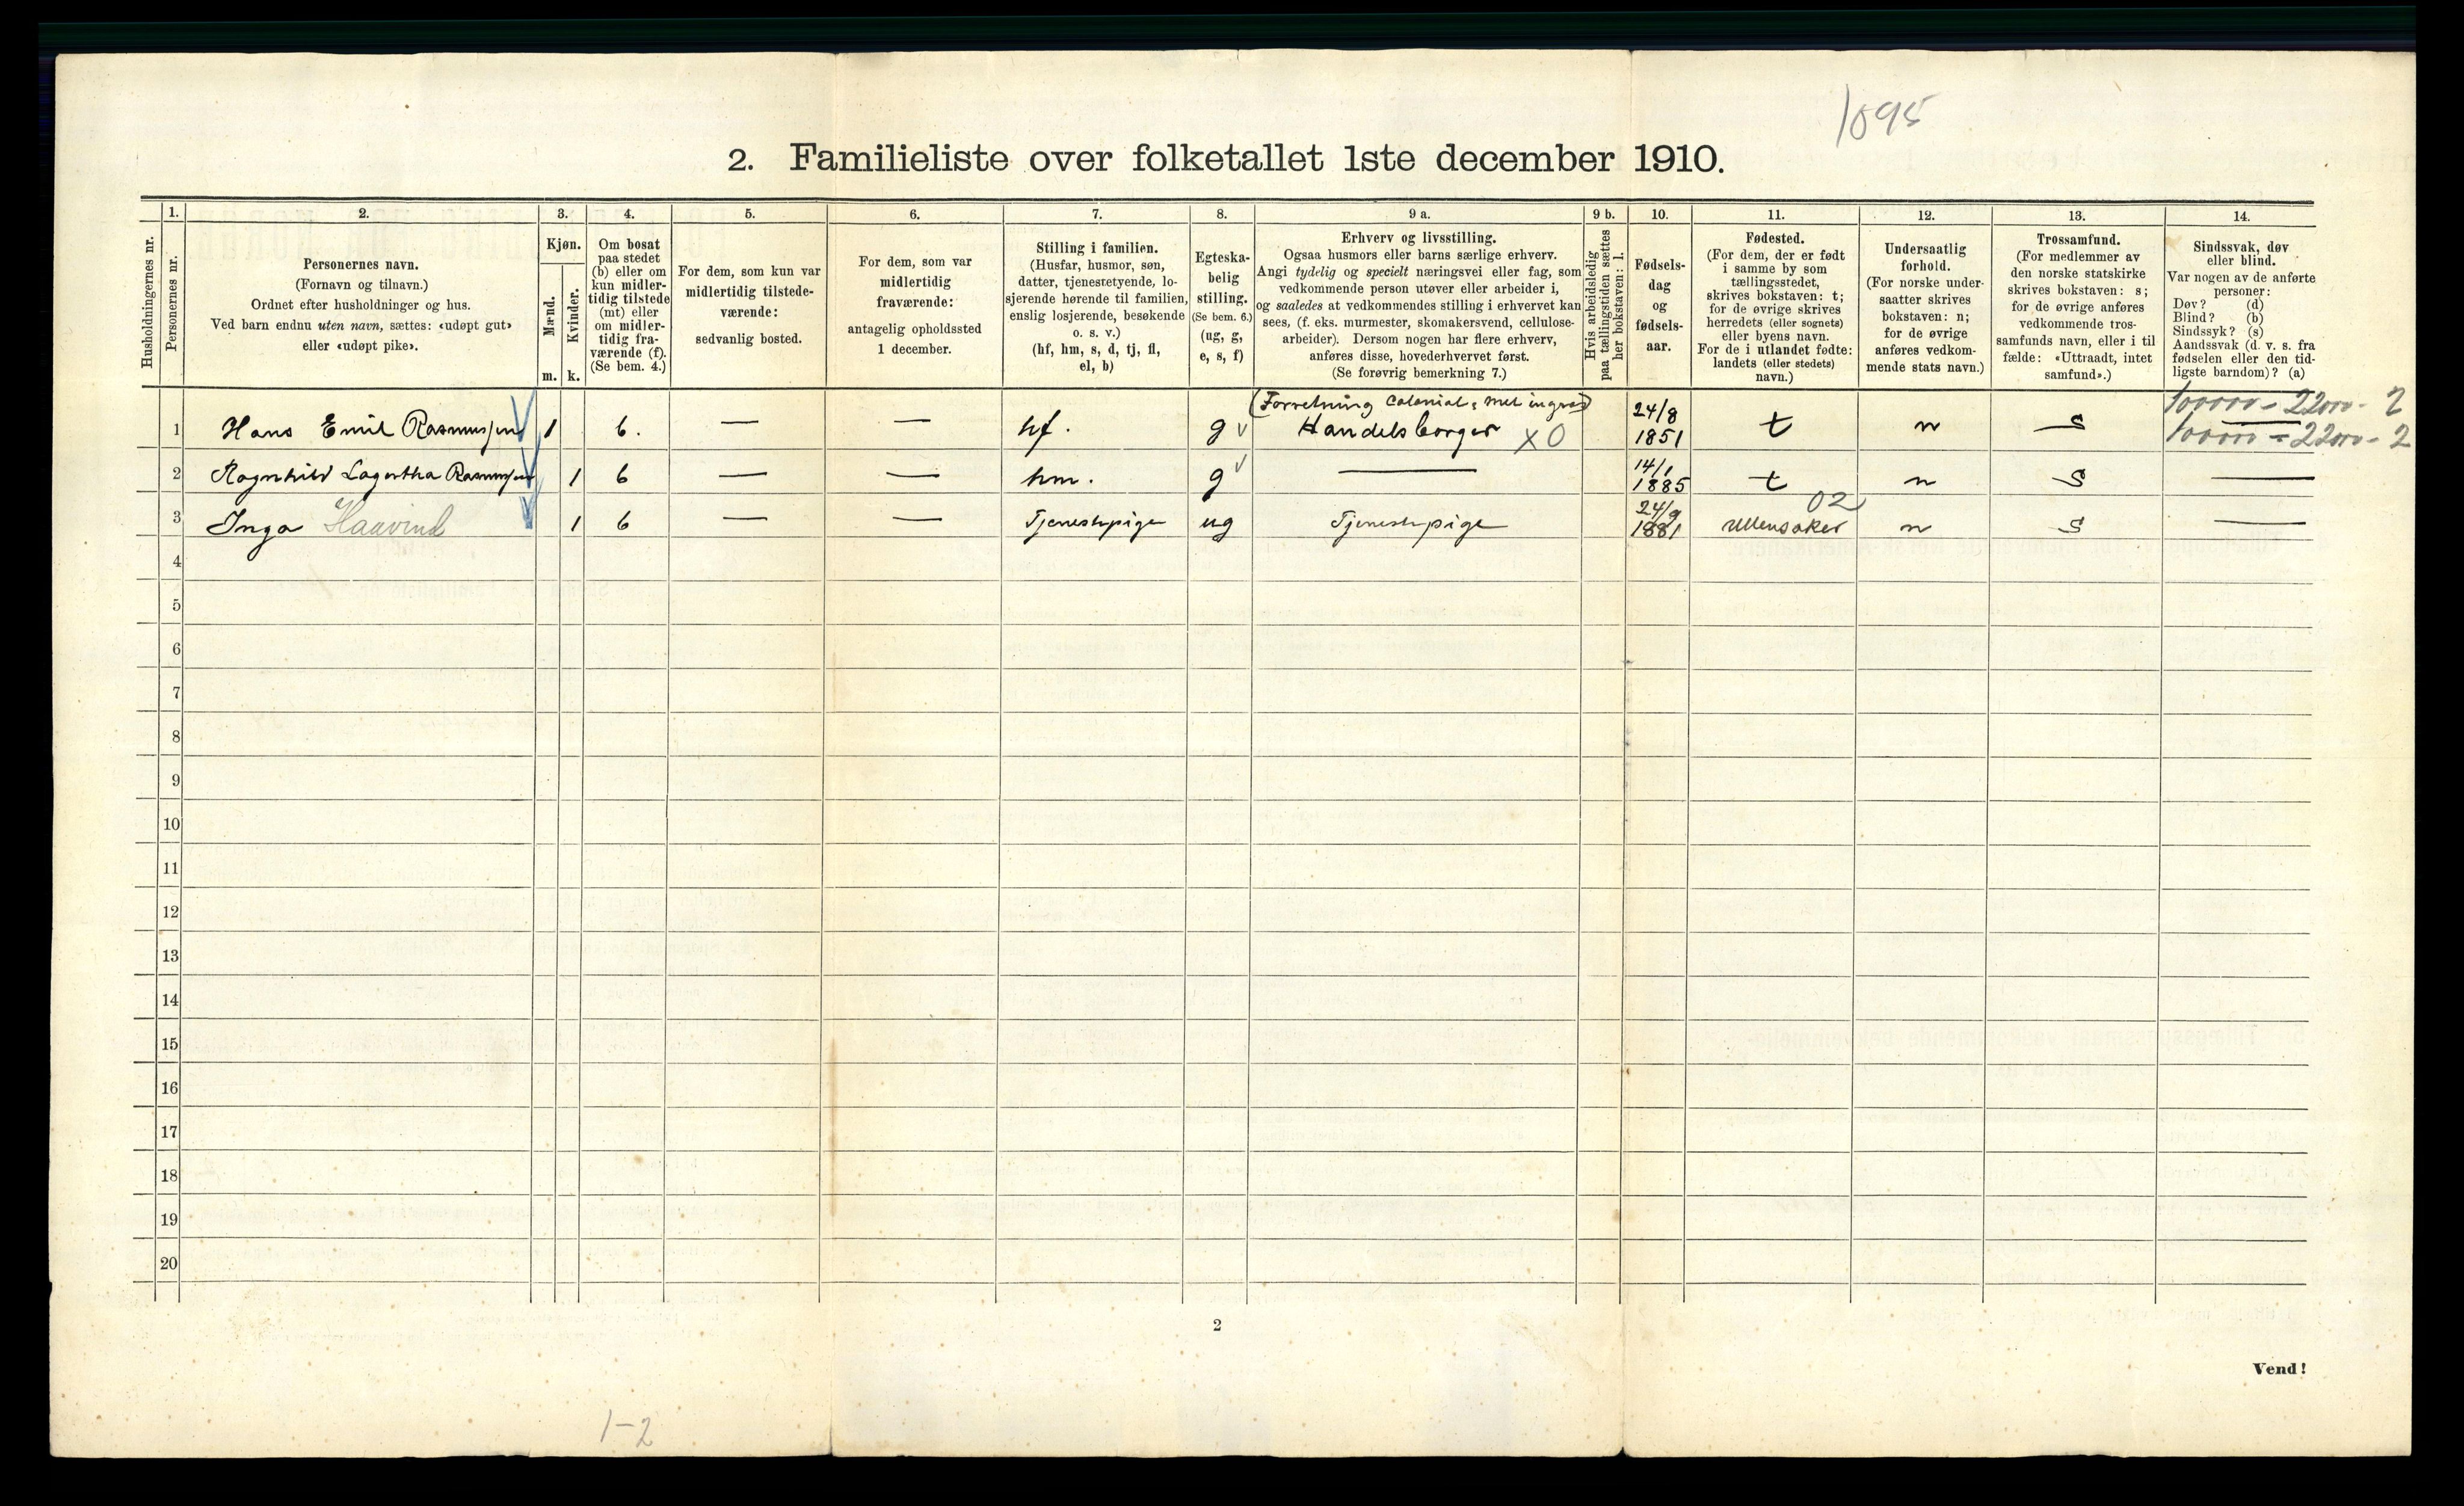 1895
2. Familieliste over folketallet 1ste december 1910.
Husholdningernes nr.
1.
Personernes nr.
2.
Personernes navn.
(Fornavn og tilnavn.)
Ordnet efter husholdninger og hus.
Ved barn endnu uten navn, sættes: «udøpt gut»
eller «udøpt pike».
3.
Kjøn.
Mænd.
Kvinder.
m. k.
4.
Om bosat
paa stedet
(b) eller om
kun midler-
tidig tilstede
(mt) eller
om midler-
tidig fra-
værende (f).
(Se bem. 4.)
5.
For dem, som kun var
midlertidig tilstede-
værende:
sedvanlig bosted.
6.
For dem, som var
midlertidig
fraværende:
antagelig opholdssted
1 december.
7.
Stilling i familien.
(Husfar, husmor, søn,
datter, tjenestetyende, lo-
sjerende hørende til familien,
enslig losjerende, besøkende
o. s. v.)
(hf, hm, s, d, tj, fl,
el, b)
8.
Egteska-
belig
stilling.
(Se bem. 6.)
(ug, g,
e, s, f)
9 a.
Erhverv og livsstilling.
Ogsaa husmors eller barns særlige erhverv.
Angi tydelig og specielt næringsvei eller fag, som
vedkommende person utøver eller arbeider i,
og saaledes at vedkommendes stilling i erhvervet kan
sees, (f. eks. murmester, skomakersvend, cellulose-
arbeider). Dersom nogen har flere erhverv,
anføres disse, hovederhvervet først.
(Se forøvrig bemerkning 7.)
9 b.
Hvis arbeidsledig
paa tællingstiden sættes
her bokstaven: l.
10.
Fødsels-
dag
og
fødsels-
aar.
11.
Fødested.
(For dem, der er født
i samme by som
tællingsstedet,
skrives bokstaven: t;
for de øvrige skrives
herredets (eller sognets)
eller byens navn.
For de i utlandet fødte:
landets (eller stedets)
navn.)
12.
Undersaatlig
forhold.
(For norske under-
saatter skrives
bokstaven: n;
for de øvrige
anføres vedkom-
mende stats navn.)
13.
Trossamfund.
(For medlemmer av
den norske statskirke
skrives bokstaven: s;
for de øvrige anføres
vedkommende tros-
samfunds navn, eller i til
fælde: «Uttraadt, intet
samfund».)
14.
Sindssvak, døv
eller blind.
Var nogen av de anførte
personer:
Døv? (d)
Blind? (b)
Sindssyk? (s)
Aandssvak (d. v. s. fra
fødselen eller den tid-
ligste barndom)? (a)
1 Hans Emil Rasmussen 1 b. — — hf. g (Forretning Colonial, Mel ingros) Handelsborger X0 24/8 1851 t n s
100000 - 22000 - 2
100000 = 22000 - 2
2 Ragnhild Lagertha Rasmussen 1 b — — hm. g — 14/1 1885 t n S —
3 Inga Haavind 1 b — — Tjenestepige ug Tjenestepige 24/9 1881 02 Ullensaker n S —
4
5
6
7
8
9
10
11
12
13
14
15
16
17
18
19
20
2
Vend!
1-2